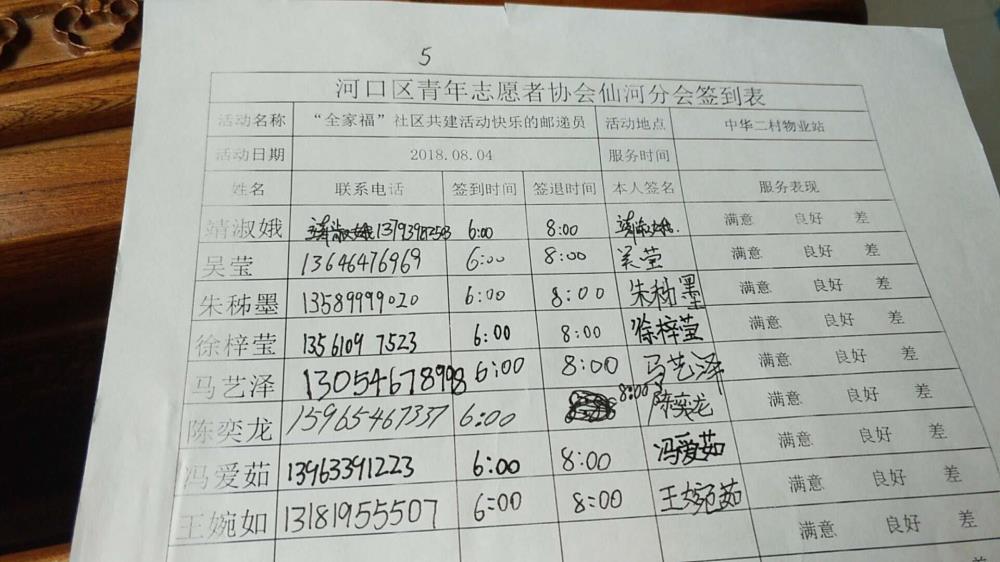 5
河口区青年志愿者协会仙河分会签到表
活动名称 “全家福”社区共建活动快乐的邮递员 活动地点 中华二村物业站
活动日期 2018.08.04 服务时间
姓名 联系电话 签到时间 签退时间 本人签名 服务表现
靖淑娥 靖淑娥 6:00 8:00 靖淑娥. 满意 良好 差
吴莹 13646476969 6:00 8:00 吴莹 满意 良好 差
朱秭墨 13589999020 6:00 8:00 朱秭墨 满意 良好 差
徐梓莹 1356109 7523 6:00 8:00 徐梓莹 满意 良好 差
马艺泽 13054678998 6:00 8:00 马艺泽 满意 良好 差
陈奕龙 15965467337 6:00 8:00 陈奕龙 满意 良好 差
冯爱茹 13963391223 6:00 8:00 冯爱茹 满意 良好 差
王婉如 13181955507 6:00 8:00 王婉茹 满意 良好 差
满意 良好 差
差